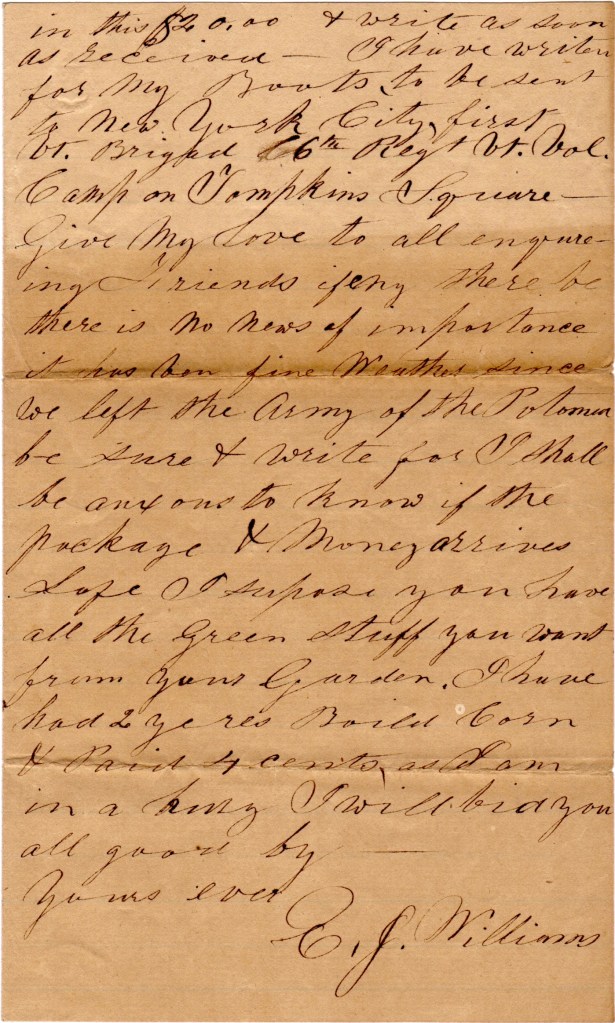 in this $20.00 & write as soon
as received — I have writen
for my Boots, to be sent
to New York City, first
Vt. Brigad 6th Regt Vt. Vol.
Camp on Tompkins Square —
Give My Love to all enqure-
ing Friends if eny there be
there is no news of importance
it has ben fine Weather since
we left the Army of the Potomac
be sure & write for I shall
be anxous to know if the
package & Money arrives
Safe I supose you have
all the Green stuff you want
from your Garden. I have
had 2 yeres Boild Corn
& Paid 4 cents, as I am
in a hury I will bid you
all good by —
Yours ever
E. J. Williams